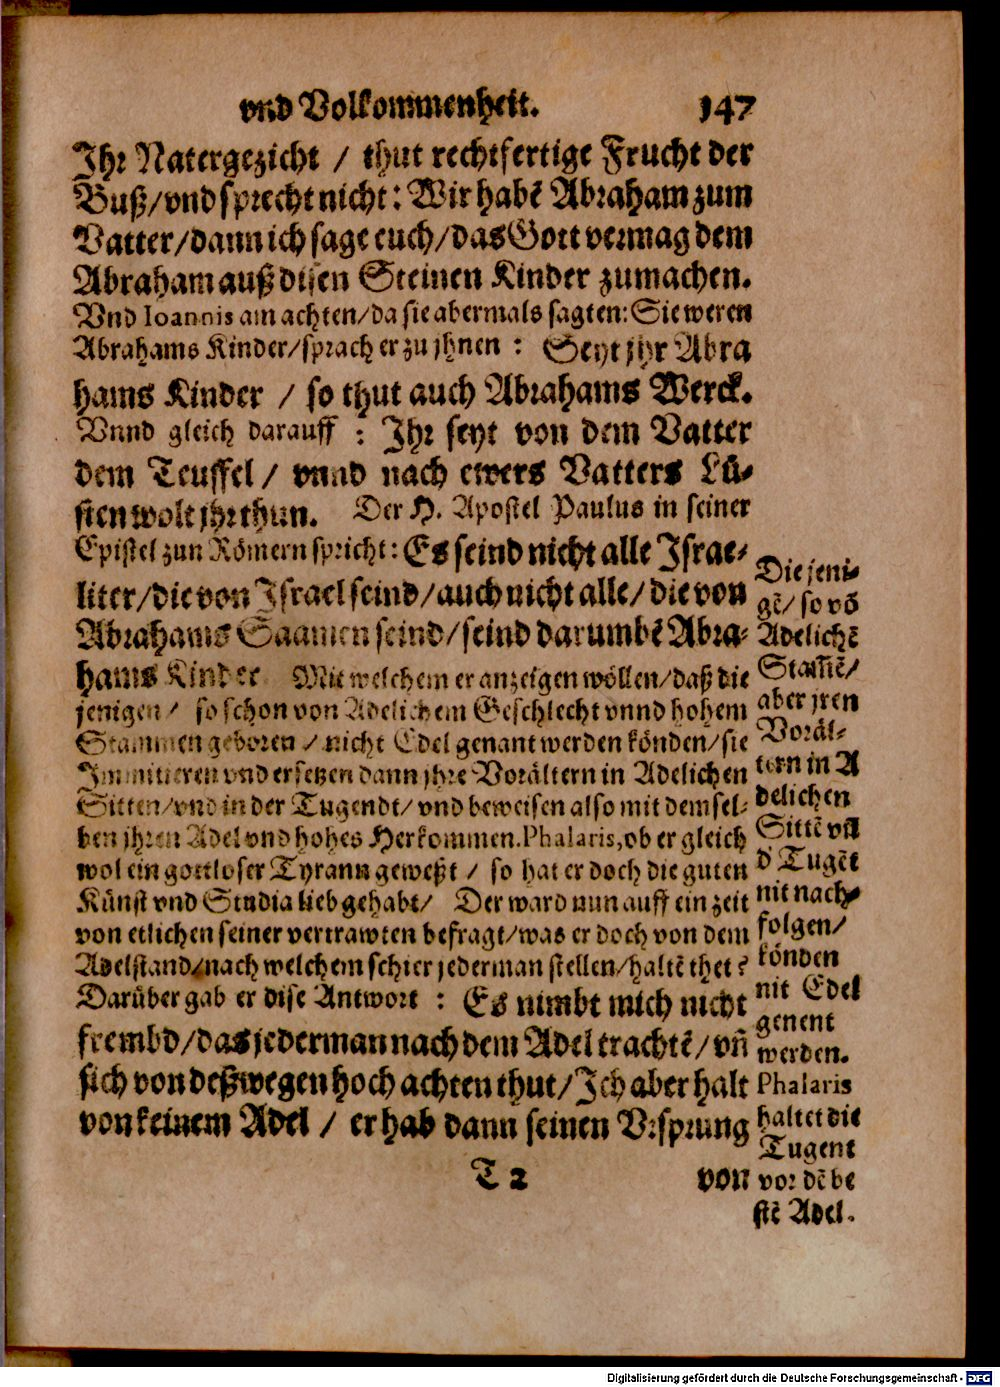 vnd Volkommenheit. 147
Ihr Natergezicht / thut rechtfertige Frucht der
Buß/vnd sprecht nicht: Wir habẽ Abraham zum
Vatter/dann ich sage euch/das Gott vermag dem
Abraham auß disen Steinen Kinder zumachen.
Vnd Ioannis am achten/da sie abermals sagten: Sie weren
Abrahams Kinder/sprach er zu jhnen : Seyt jhr Abra
hams Kinder / so thut auch Abrahams Werck.
Vnnd gleich darauff : Ihr seyt von dem Vatter
dem Teuffel / vnnd nach ewers Vatters Lü-
sten wolt jhr thun. Der H. Apostel Paulus in seiner
Epistel zun Römern spricht: Es seind nicht alle Israe-
liter/die von Israel seind/auch nicht alle/die von
Abrahams Saamen seind/seind darumbẽ Abra-
hams Kinder Mit welchem er anzeigen wöllen/daß die
jenigen / so schon von Adelichem Geschlecht vnnd hohem
Stammen geboren / nicht Edel genant werden könden/sie
Immitieren vnd ersetzen dann jhre Vorältern in Adelichen
Sitten/vnd in der Tugendt/ vnd beweisen also mit demsel-
ben jhren Adel vnd hohes Herkommen. Phalaris, ob er gleich
wol ein gottloser Tyrann geweßt / so hat er doch die guten
Künst vnd Studia lieb gehabt/ Der ward nun auff ein zeit
von etlichen seiner vertrawten befragt/was er doch von dem
Adelstand/nach welchem schier jederman stellen/haltẽ thet?
Darüber gab er dise Antwort : Es nimbt mich nicht
frembd/das jederman nach dem Adel trachtẽ/ vñ
sich von deßwegen hoch achten thut/Ich aber halt
von keinem Adel / er hab dann seinen Vrsprung
T 2 von
Die jeni-
gẽ/ so võ
Adelichẽ
Stam̃ẽ/
aber jren
Voräl-
tern in A
delichen
Sittẽ vñ
d' Tugẽt
nit nach-
folgen/
könden
nit Edel
genent
werden.
Phalaris
haltet die
Tugent
vor dẽ be
stẽ Adel.
Digitalisierung gefördert durch die Deutsche Forschungsgemeinschaft - DFG